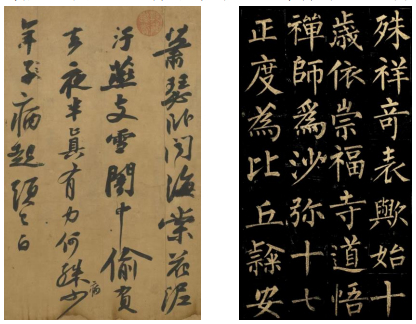 蕭瑟卧聞海棠花泥
汙燕支雪闇中偷負
去夜半真有力何殊少
病
年子病起須已白
殊祥奇表歟始十
歲依崇福寺道悟
禪師為沙弥十七
正度為比丘隸安